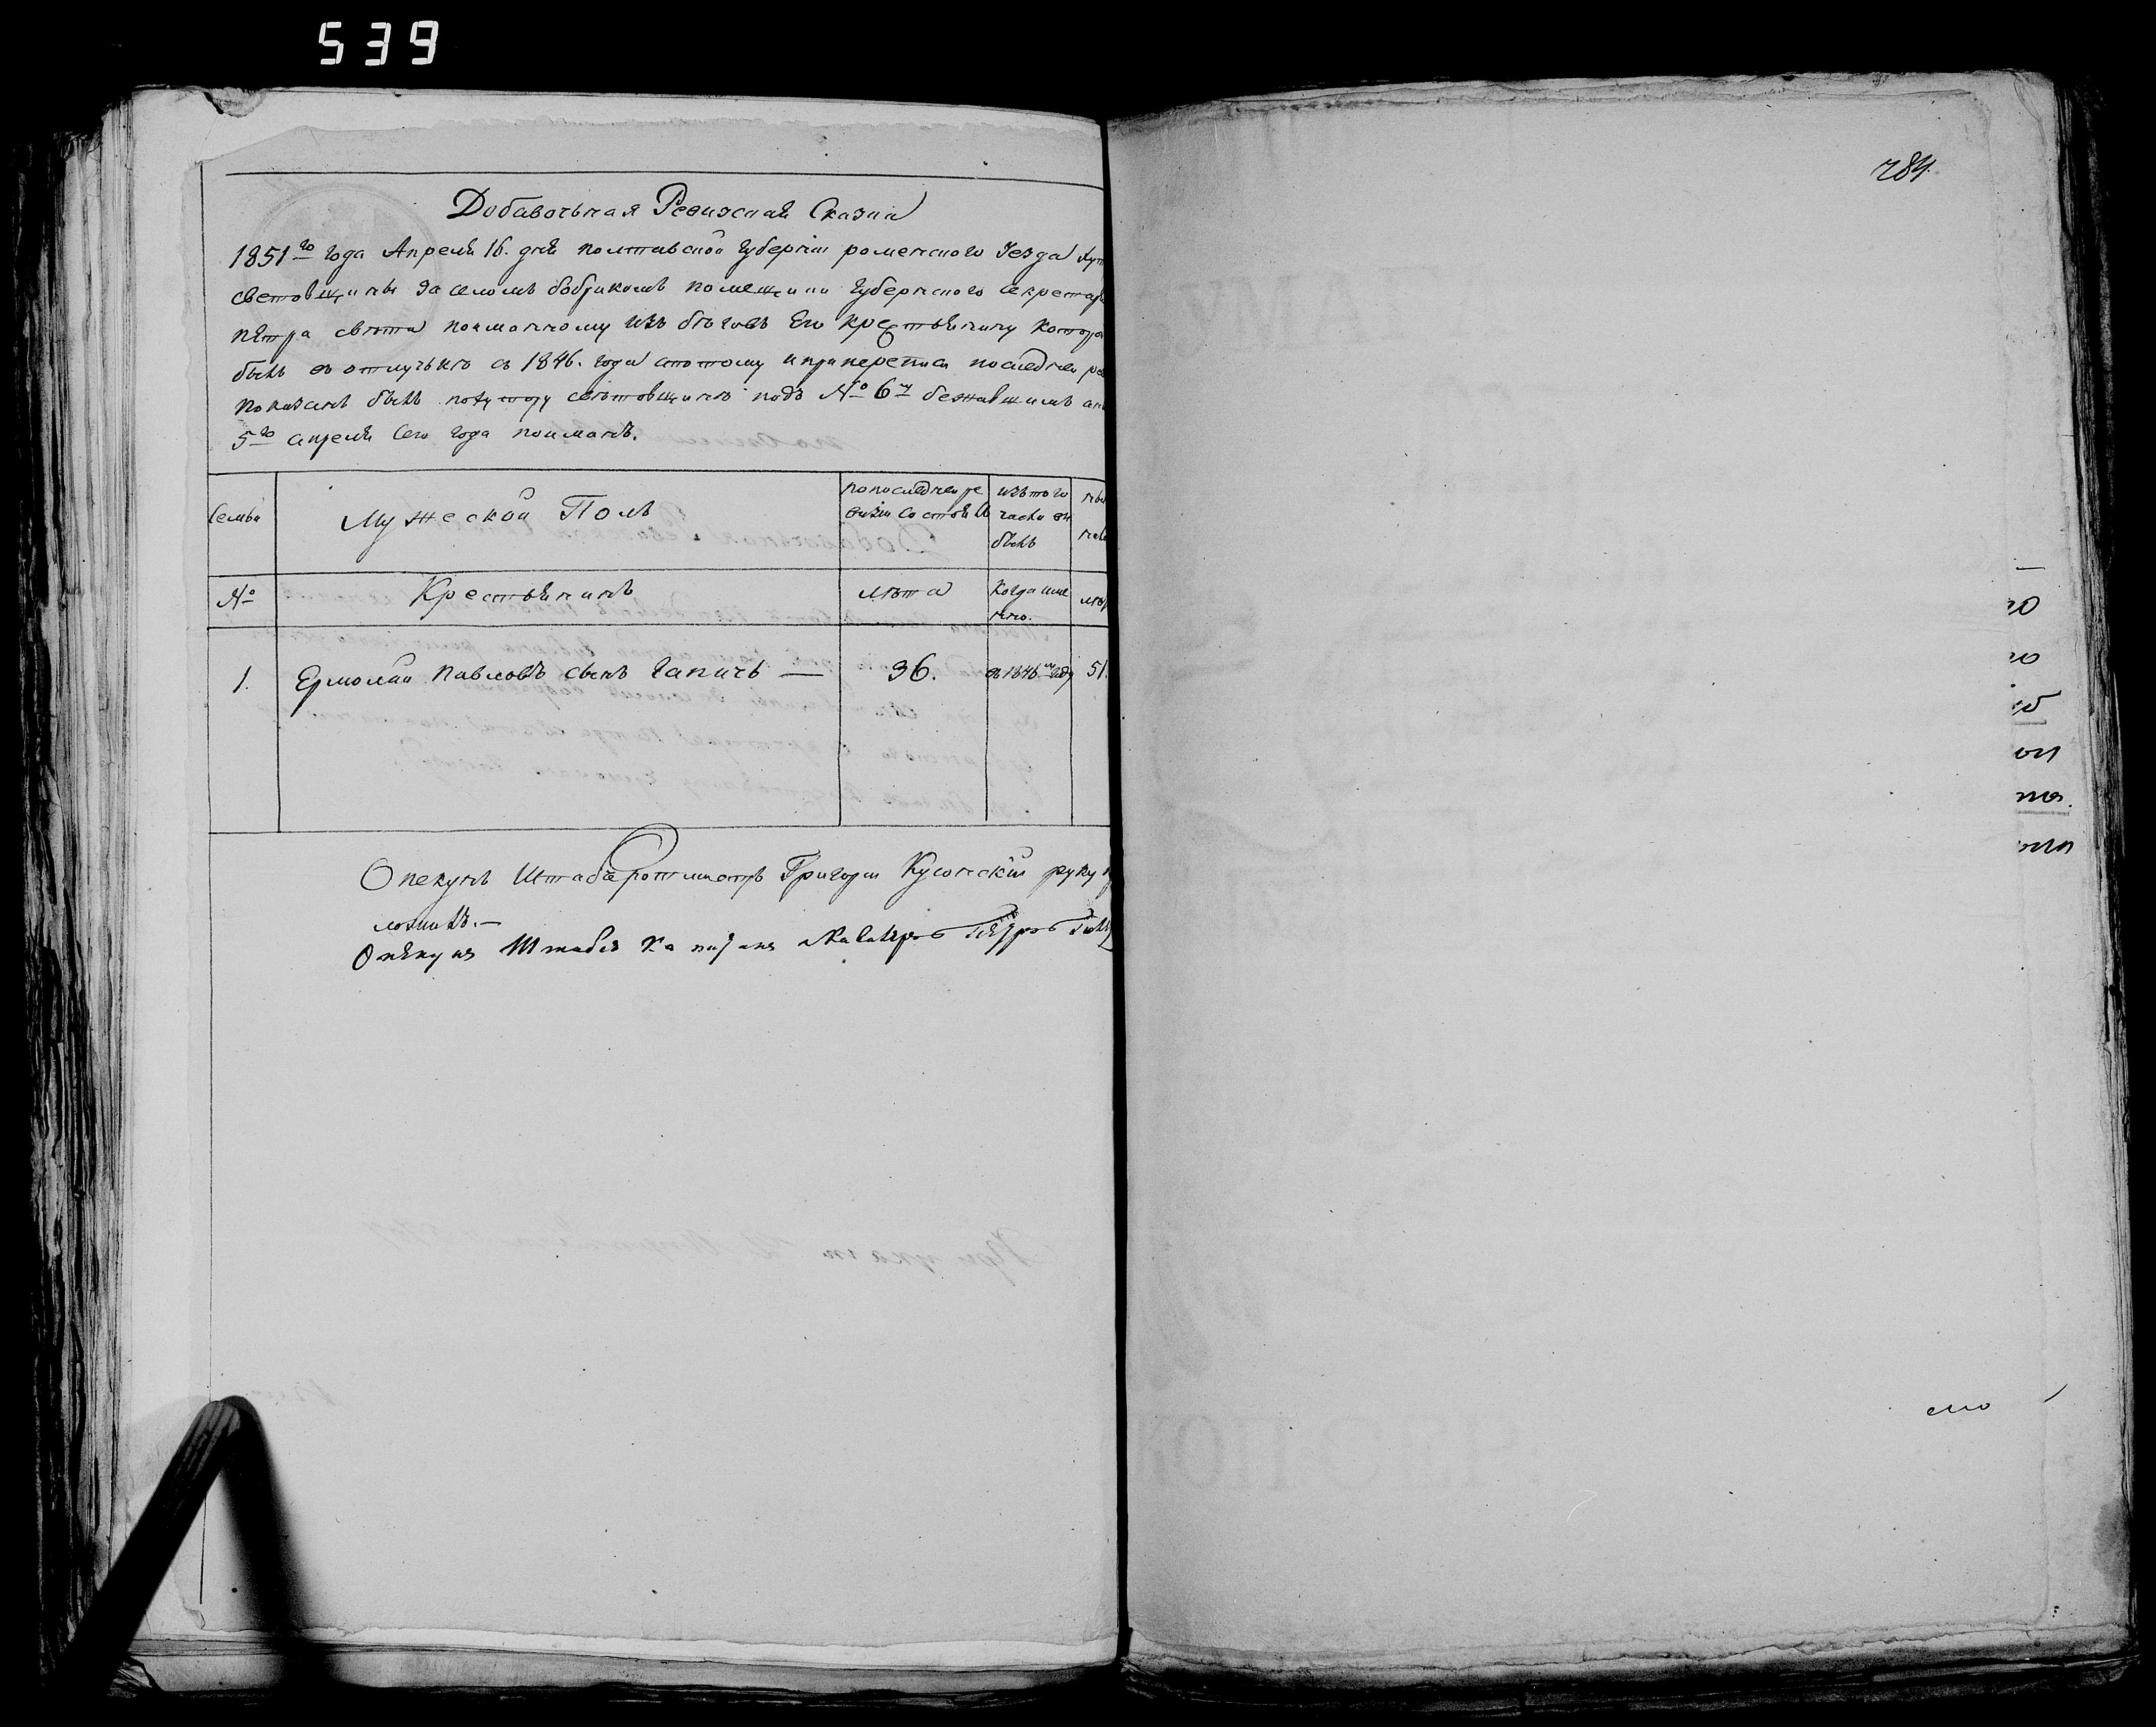 539
Добавочьная Ревизская Сказка
1851го года Апреля 16. дня полтавской губернии роменского Уезда
световщины за селомъ бобрикомъ помещика губернского секретаря
петра свѣта поиманному изъ бѣговъ его крестьянину
былъ въ отлучькѣ с 1846. года апотому ипри переписи последнеи
показанъ былъ похутору свѣтовщинѣ подъ № 6м бежавшимъ
5го апреля сего года поиманъ.
Семьи
Мужескои Полъ
по последнеи ре
визии состоялъ
изътого
числа вы
былъ
№
Крестьянинъ
лѣта
Когда име
нно.
1.
Ермолаи павловъ сынъ Гапичь —
36.
въ 1846мъ году
51.
Опекунъ Штабсъротмистръ Григории руку
ложилъ. —
Опѣкунъ Штабсъ Капитанъ
284.